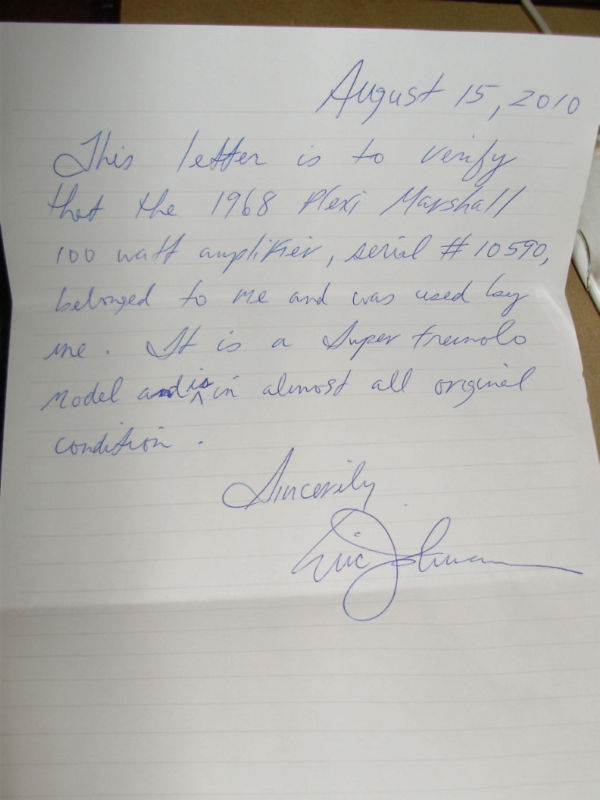 August 15, 2010
This letter is to verify
that the 1968 Plexi Marshall
100 watt amplifier, serial # 10590,
belonged to me and was used by
me. It is a Super tremolo
model and is in almost all original
condition.
Sincerily
Eric Johnson